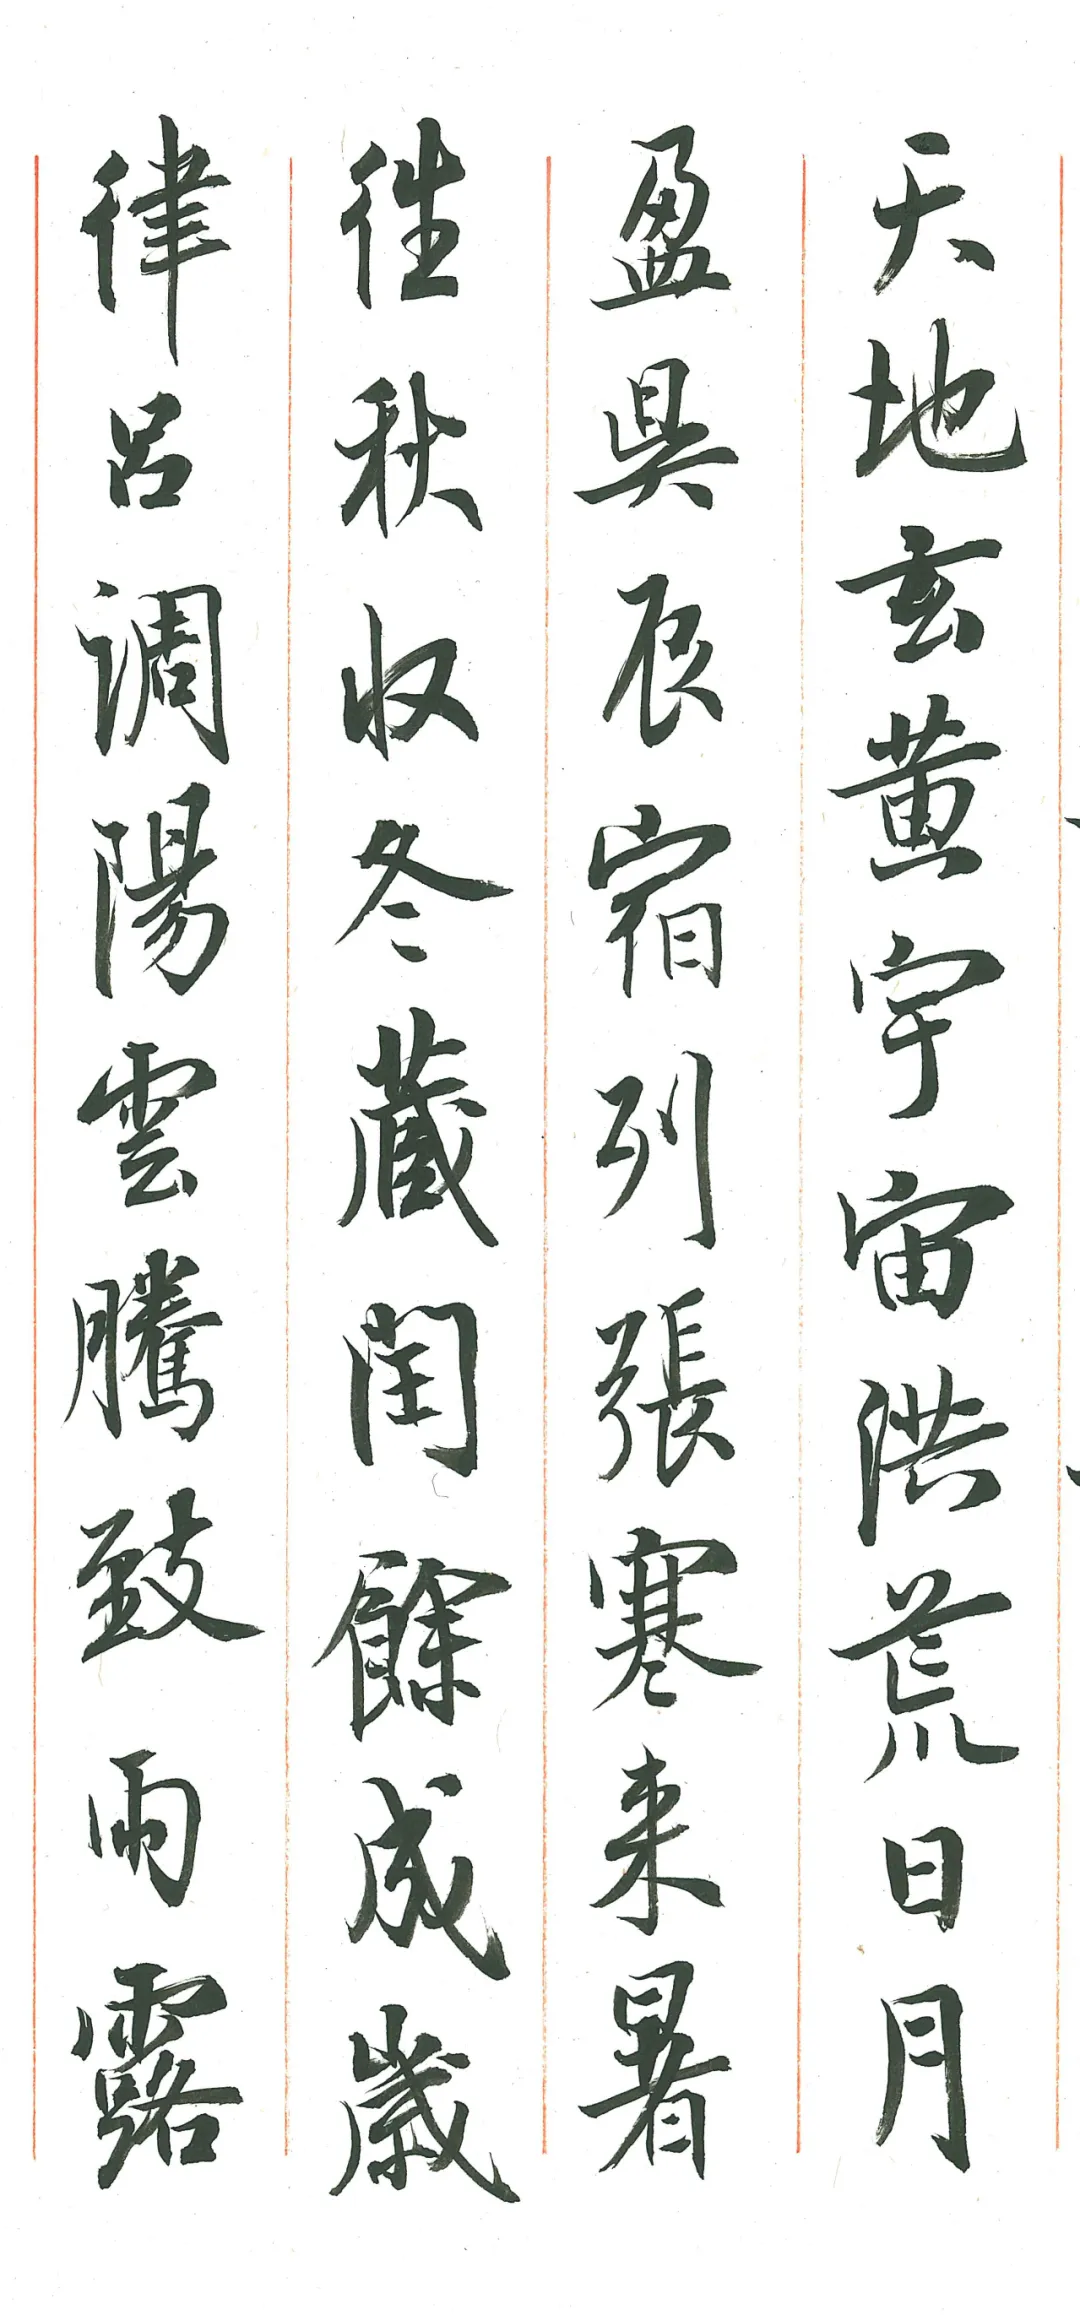 天地玄黄宇宙洪荒日月
盈昃辰宿列張寒来暑
往秋収冬藏閏餘成歲
律呂調陽雲騰致雨露